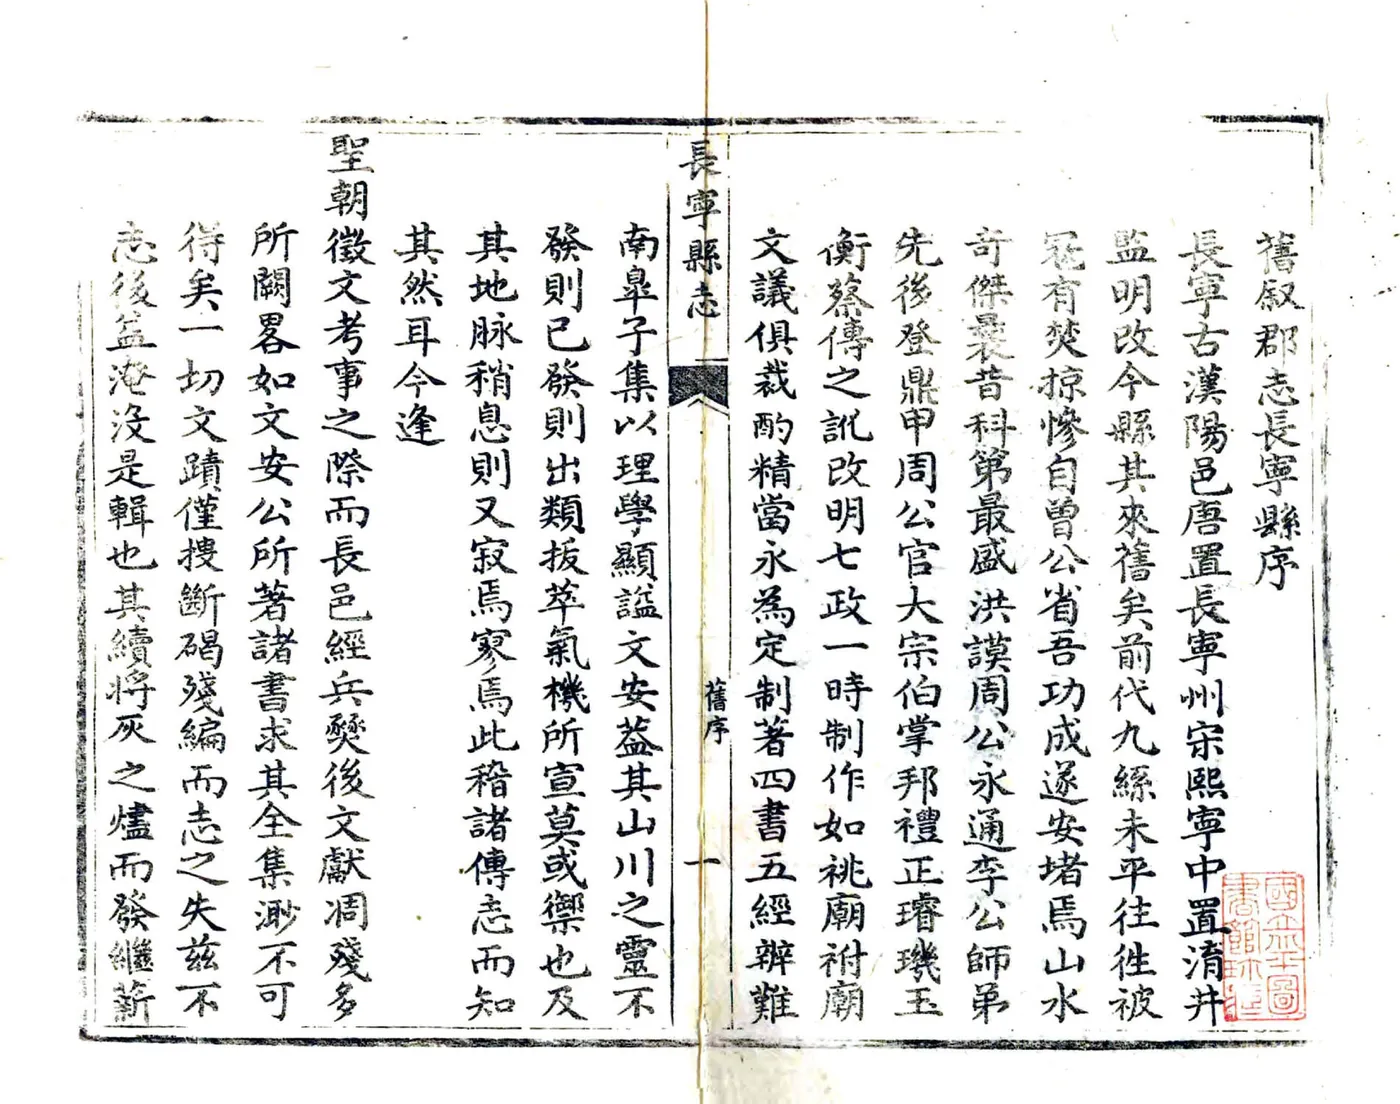 舊叙郡志長寧縣序
長寧古漢陽邑唐置長寧州宋熙寧中置淯井
監明改今縣其來舊矣前代九絲未平往徃被
冦有焚掠慘自曾公省吾功成遂安堵焉山水
竒傑曩昔科第最盛洪謨周公永通李公師弟
先後登鼎甲周公官大宗伯掌邦禮正璿璣玉
衡蔡傳之訛改明七政一時制作如祧廟祔廟
文議俱裁酌精當永為定制著四書五經辨難
長寧縣志
舊序
一
南臯子集以理學顯謚文安葢其山川之靈不
發則已發則出類拔萃氣機所宣莫或禦也及
其地脉稍息則又寂焉寥焉此稽諸傳志而知
其然耳今逢
聖朝徵文考事之際而長邑經兵燹後文獻凋殘多
所闕畧如文安公所著諸書求其全集渺不可
得矣一切文蹟僅搜斷碣殘編而志之失兹不
志後益淹沒是輯也其續將灰之燼而發繼薪
國立北平圖
書館珍藏